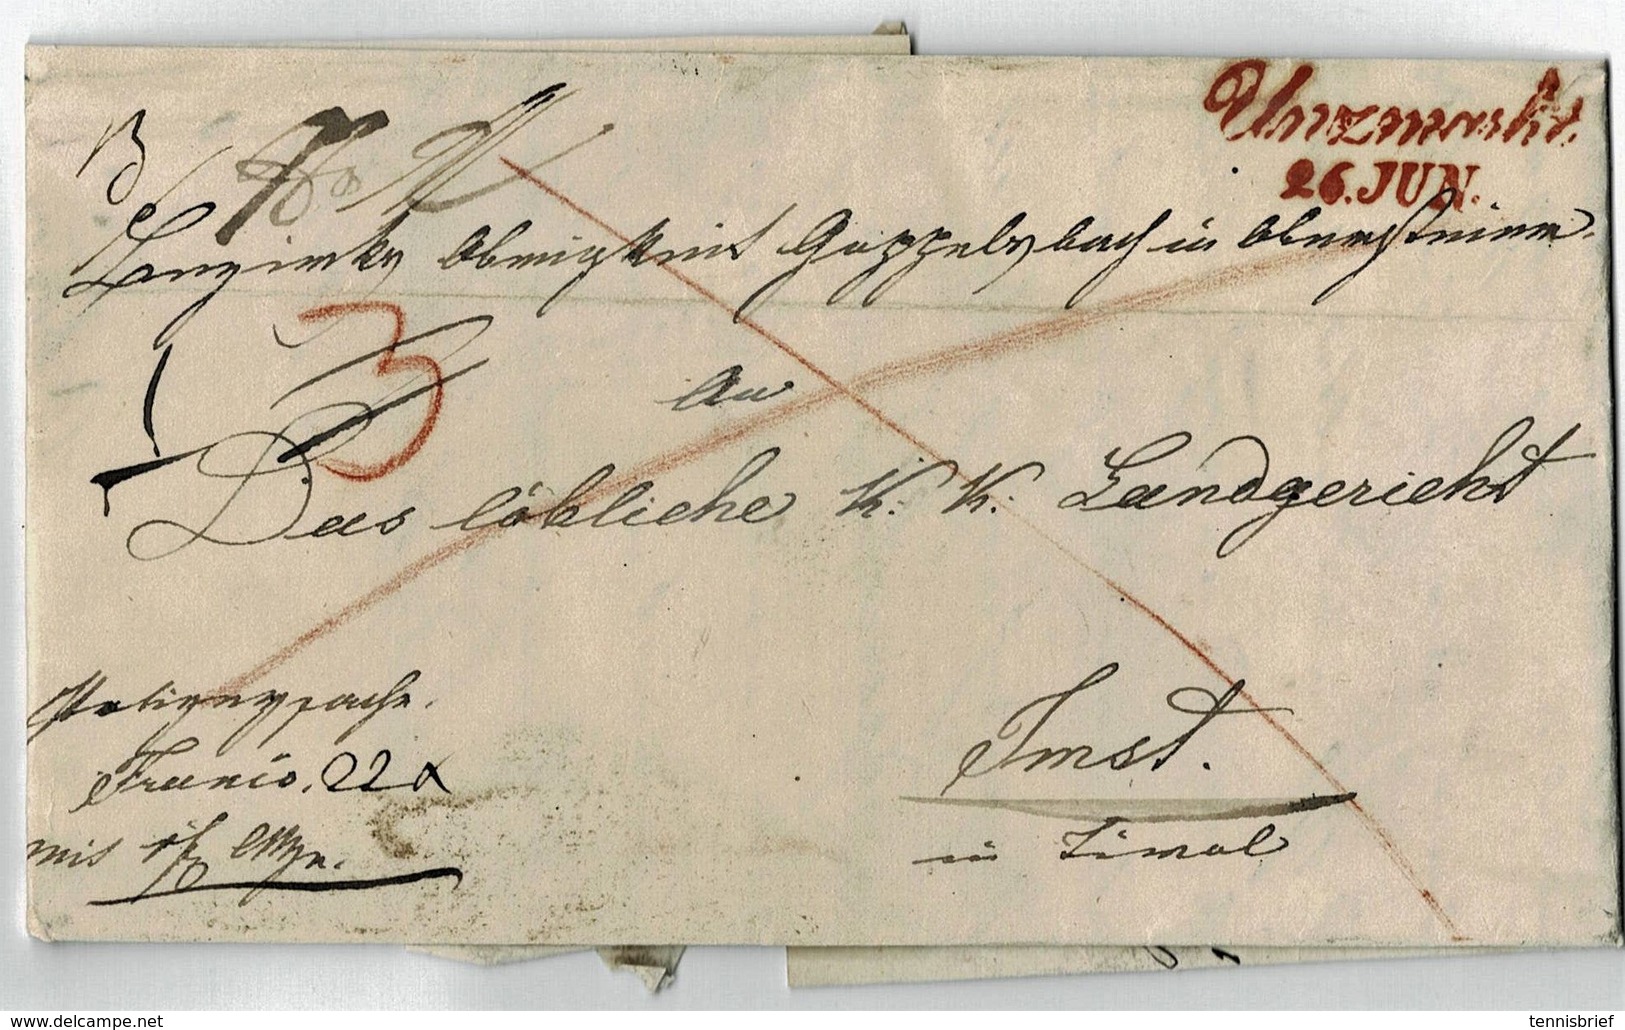 Unzmarkt.
26. JUN.
Bezirks Obrigkeit Goppelsbach in Obersteierm.
3
An
Das löbliche K. K. Landgericht
Imst.
in Tirol
Polizeysache.
Franco. 22x
mit
www.delcampe.net
tennisbrief